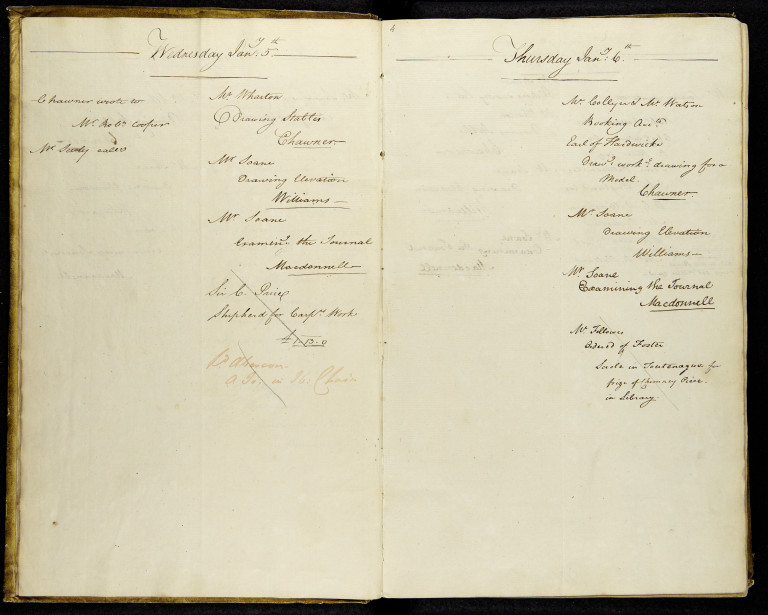 Wednesday Jany. 5th
Chawner wrote to
Mr. Robt. Cooper
Mr called
Mr Wharton
Drawing Stables
Chawner
Mr Soane
Drawing Elevation
Williams
Mr Soane
Examing. the Journal
Macdonnell
Sir C. Price
Shepherd for Carprs. Work
£1-13-0
Thursday Jany. 6th
Mr Collyer & Mr Watson
Booking Acct.
Earl of Hardwicke
Drawg. workg. drawing for a
Model.
Chawner.
Mr Soane
Drawing Elevation
Williams
Mr Soane
Examining the Journal
Macdonnell
Mr Fellowes
Orderd of Foster
in Tutenague for
frize of Chimney Piece.
in Library